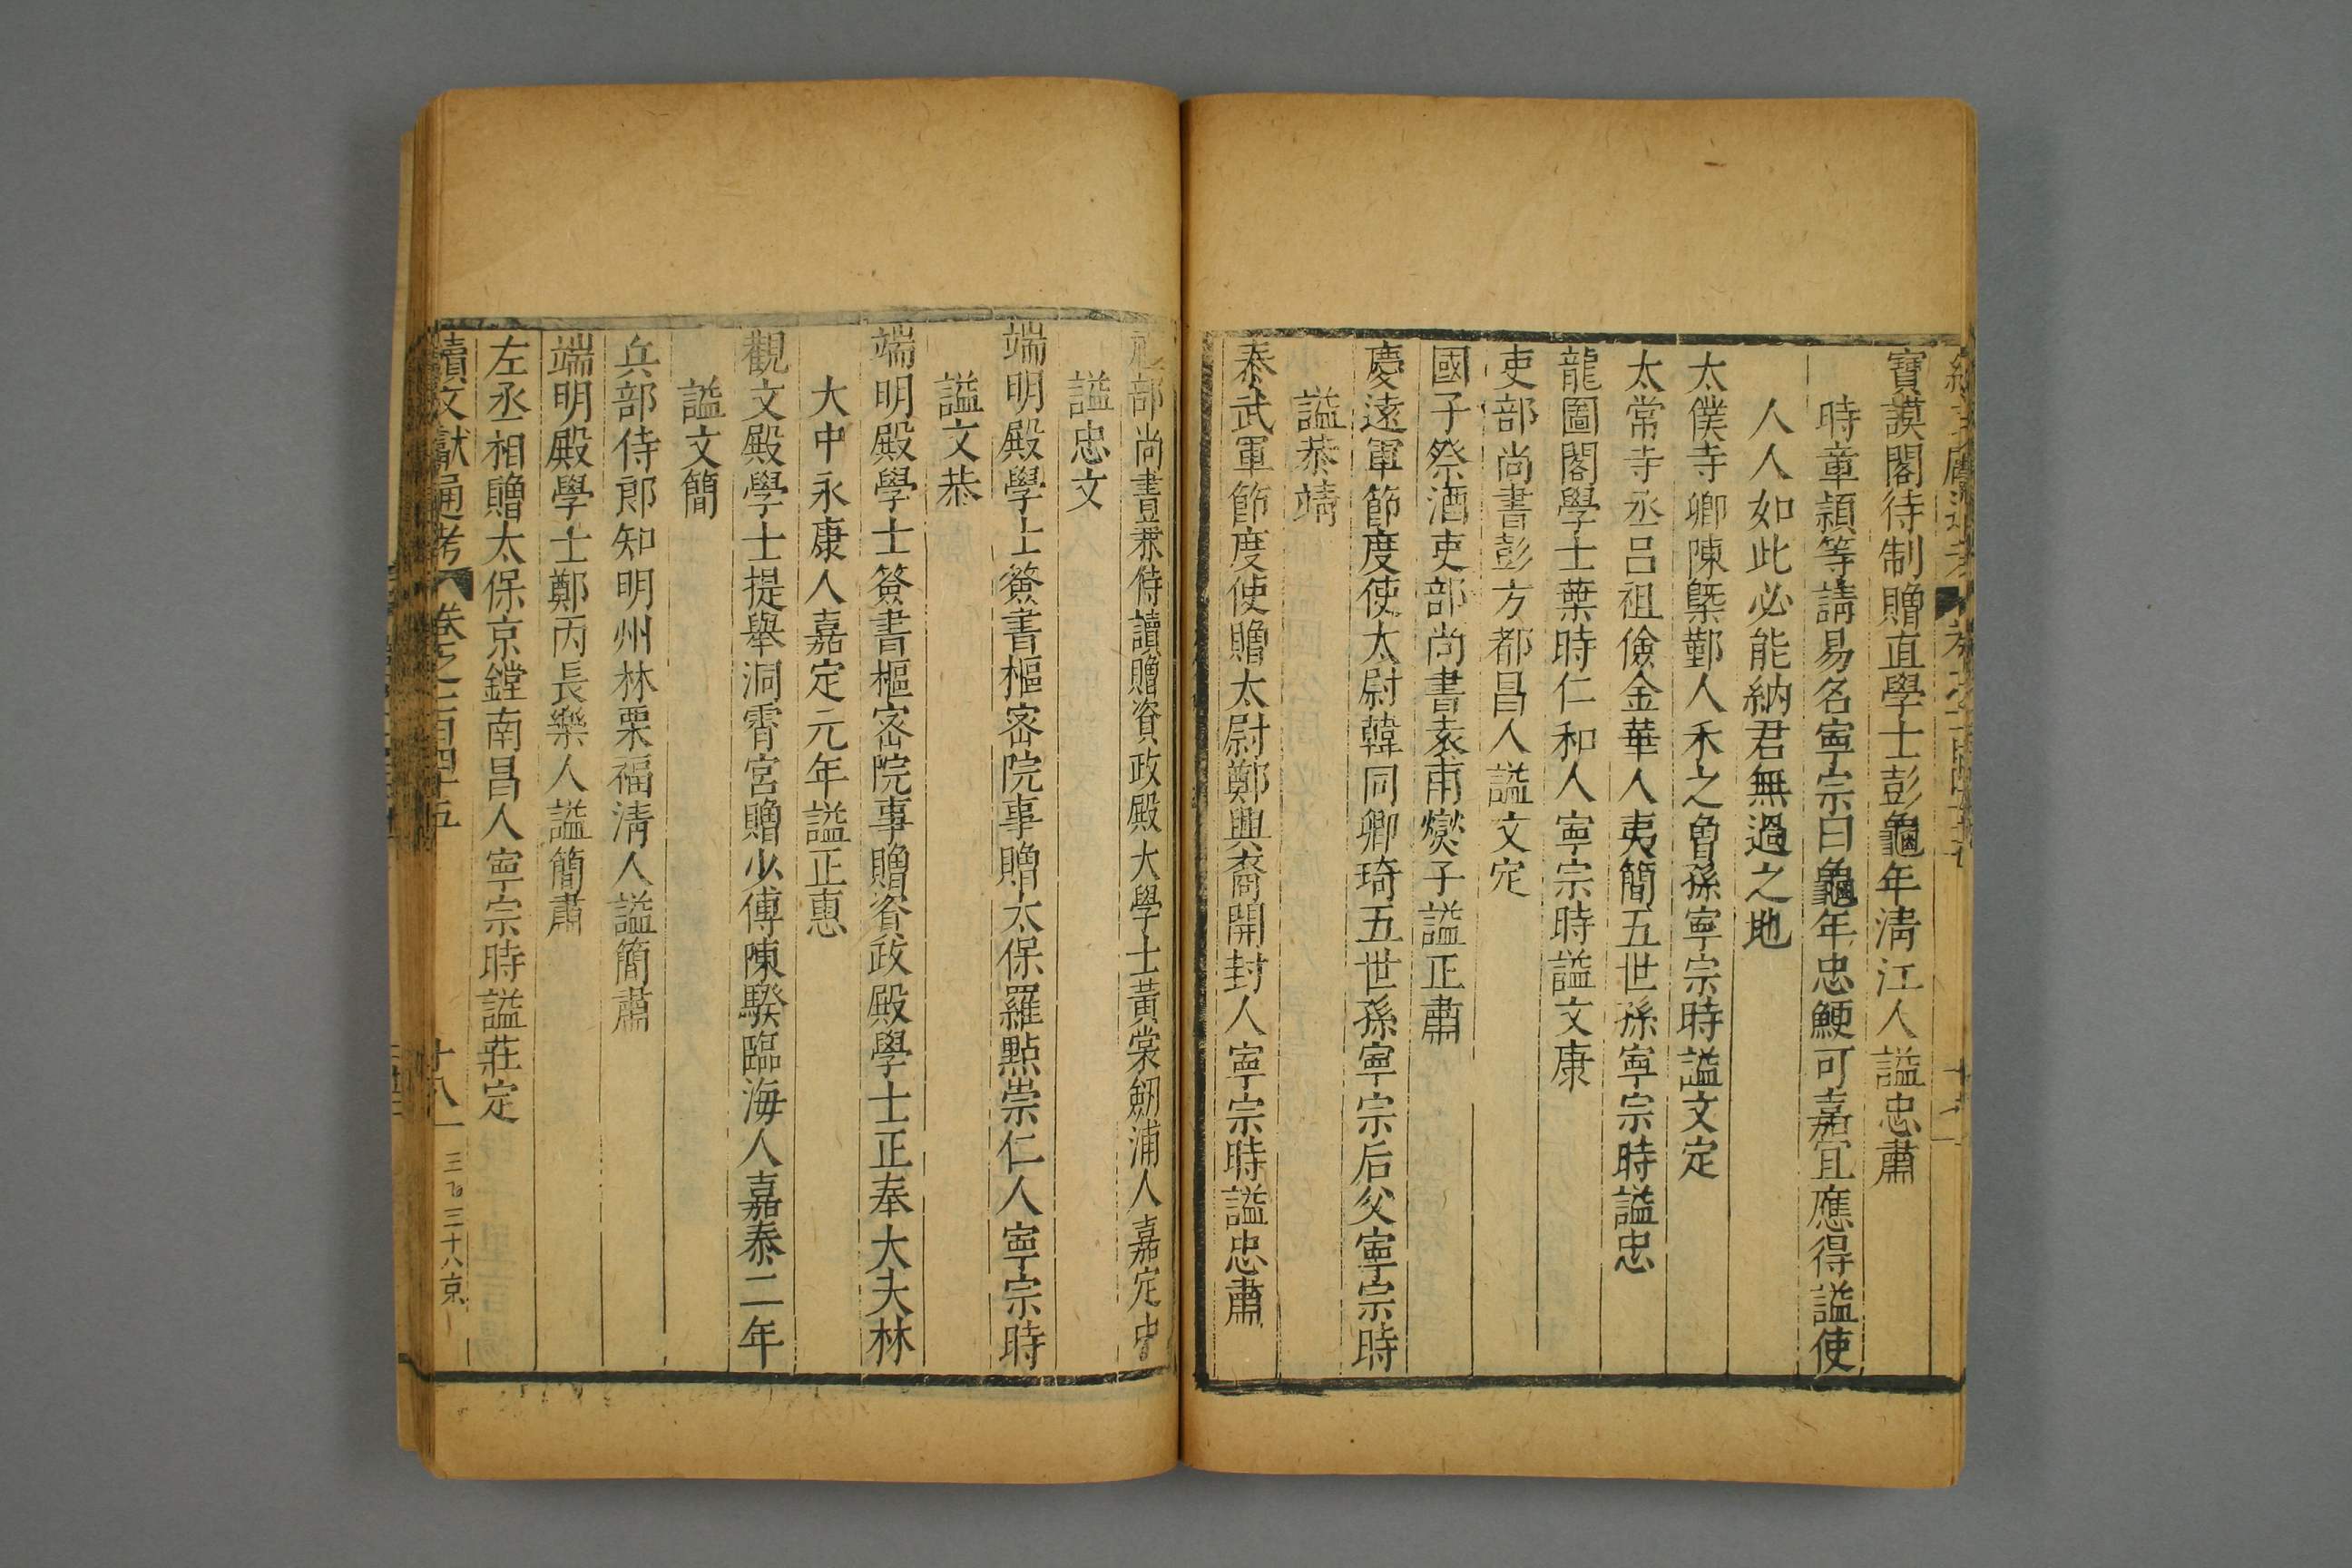 寶謨閣待制贈直學士彭龜年清江人謚忠肅
時章頴等請易名寧宗曰龜年忠鯁可嘉宜應得謚使
人人如此必能納君無過之地
太僕寺卿陳槩鄞人禾之曾孫寧宗時謚文定
太常寺丞呂祖儉金華人夷簡五世孫寧宗時謚忠
龍圖閣學士葉時仁和人寧宗時謚文康
吏部尚書彭方都昌人謚文定
國子祭酒吏部尚書袁甫燮子謚正肅
慶遠軍節度使太尉韓同卿琦五世孫寧宗后父寧宗時
謚恭靖
泰武軍節度使贈太尉鄭興裔開封人寧宗時謚忠肅
禮部尚書兼侍讀贈資政殿大學士黃裳劒浦人嘉定中
謚忠文
端明殿學士簽書樞密院事贈太保羅點崇仁人寧宗時
謚文恭
端明殿學士簽書樞密院事贈資政殿學士正奉大夫林
大中永康人嘉定元年謚正惠
觀文殿學士提舉洞霄宮贈少傅陳騤臨海人嘉泰二年
謚文簡
兵部侍郎知明州林栗福清人謚簡肅
端明殿學士鄭丙長樂人謚簡肅
左丞相贈太保京鏜南昌人寧宗時謚莊定
續文獻通考 卷之一百四十五 十八 三百三十八京